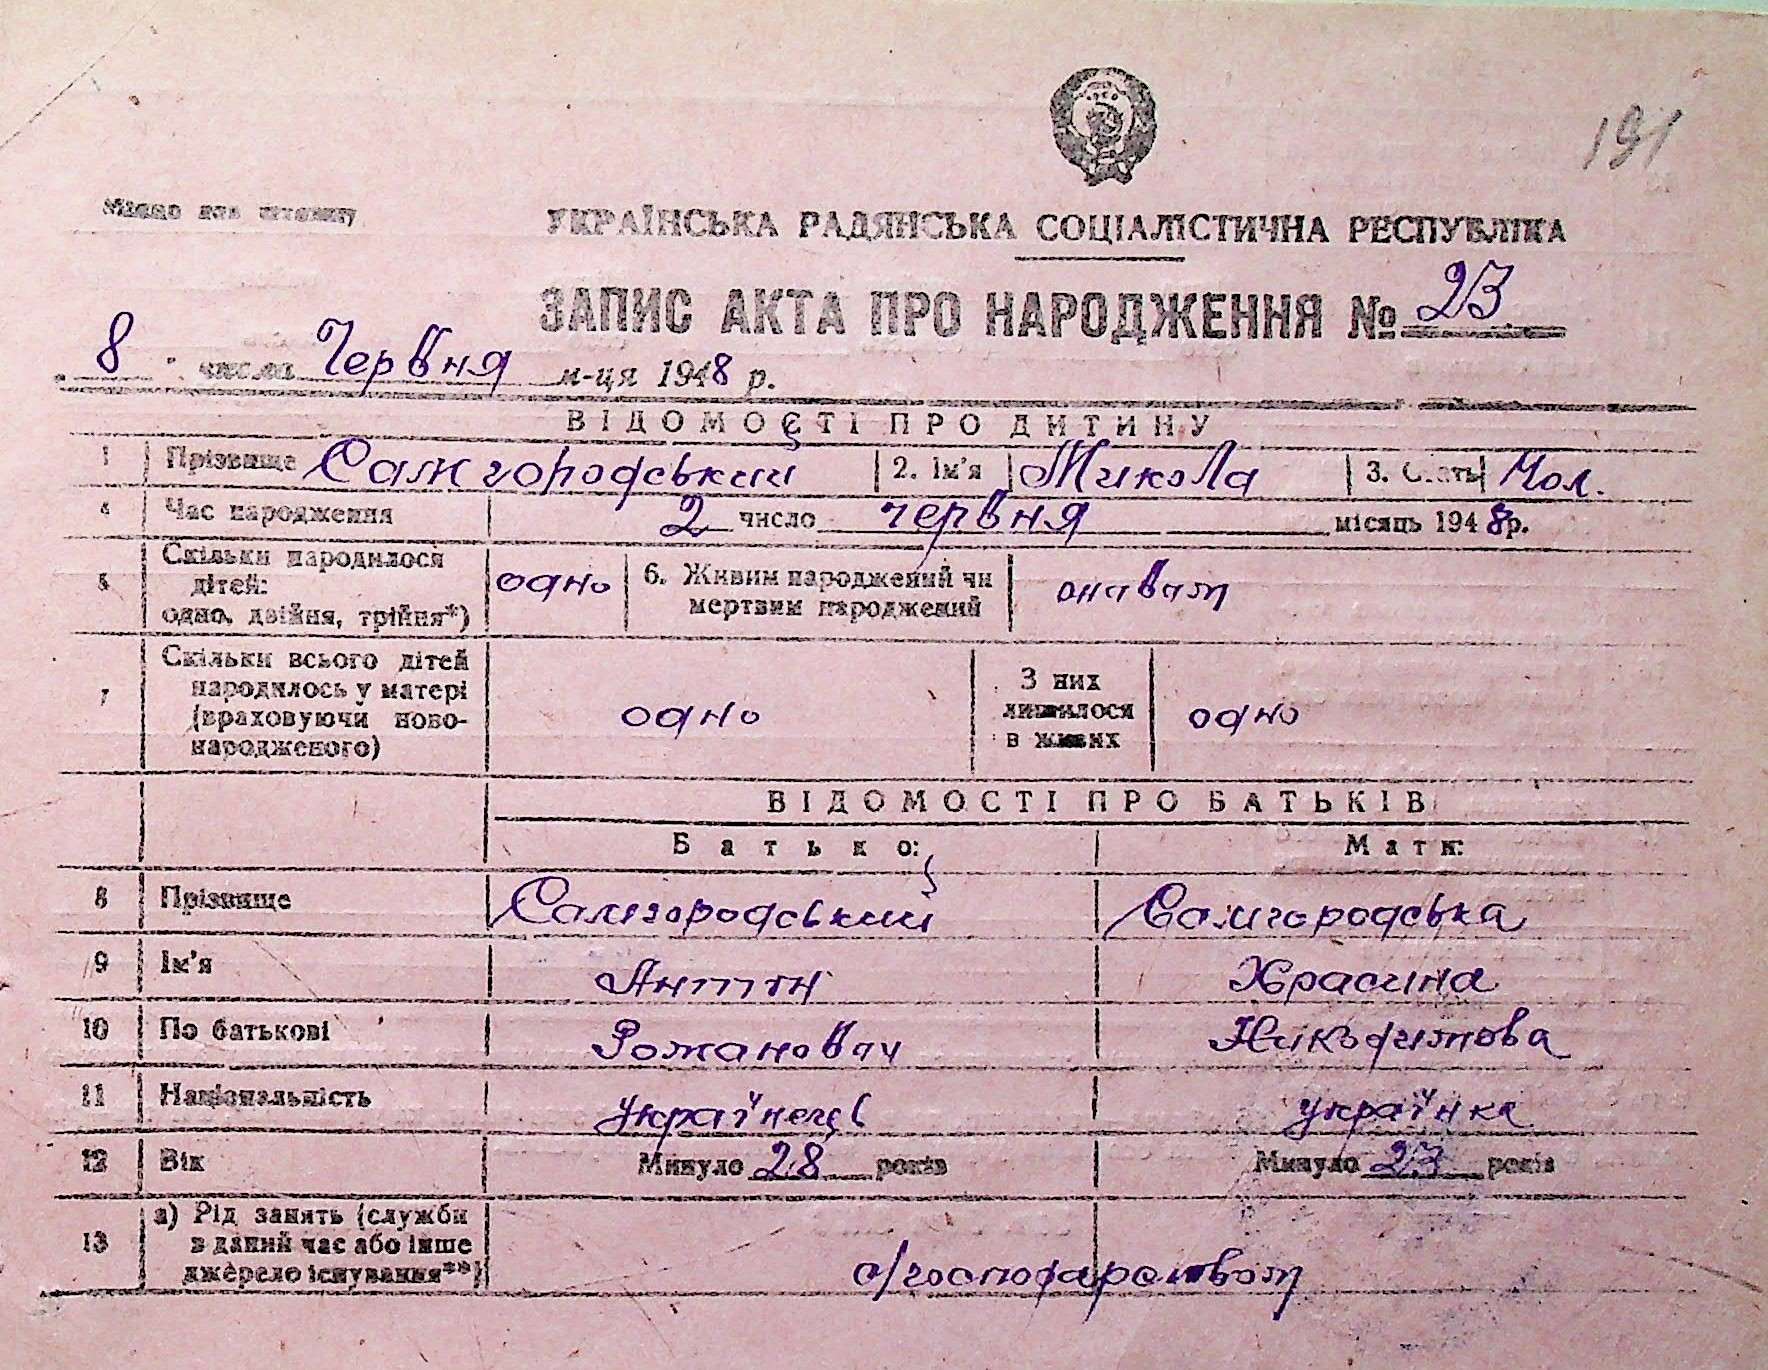 191
Місце для штампу
УКРАЇНСЬКА РАДЯНСЬКА СОЦІАЛІСТИЧНА РЕСПУБЛІКА
ЗАПИС АКТА ПРО НАРОДЖЕННЯ № 23
8 числа Червня м-ця 1948 р.
ВІДОМОСТІ ПРО ДИТИНУ
1 Прізвище Самгородський 2. Ім'я Микола 3. Стать Чол.
4 Час народження 2 число червня місяць 1948 р.
5 Скільки народилося дітей: одно, двійня, трійня*) одно 6. Живим народжений чи мертвим народжений
7 Скільки всього дітей народилось у матері (враховуючи новонародженого) одно З них лишилося в живих одно
ВІДОМОСТІ ПРО БАТЬКІВ
Батько: Мати:
8 Прізвище Самгородський Самгородська
9 Ім'я Антон
10 По батькові Романович Никодимова
11 Національність українець українка
12 Вік Минуло 28 років Минуло 23 років
13 а) Рід занять (служби в даний час або інше джерело існування**)